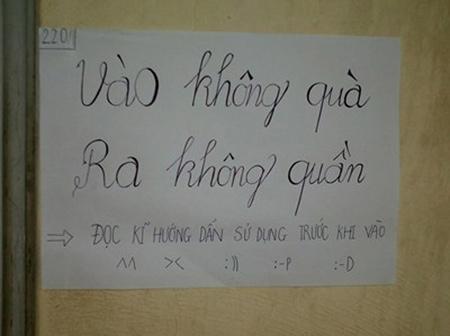 220
Vào không quà
Ra không quần
=> ĐỌC KĨ HƯỚNG DẪN SỬ DỤNG TRƯỚC KHI VÀO
^^ >< :)) :-P :-D